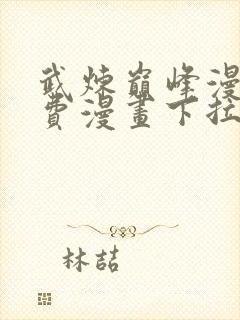 武煉巔峰漫
費漫畫下拉
林喆